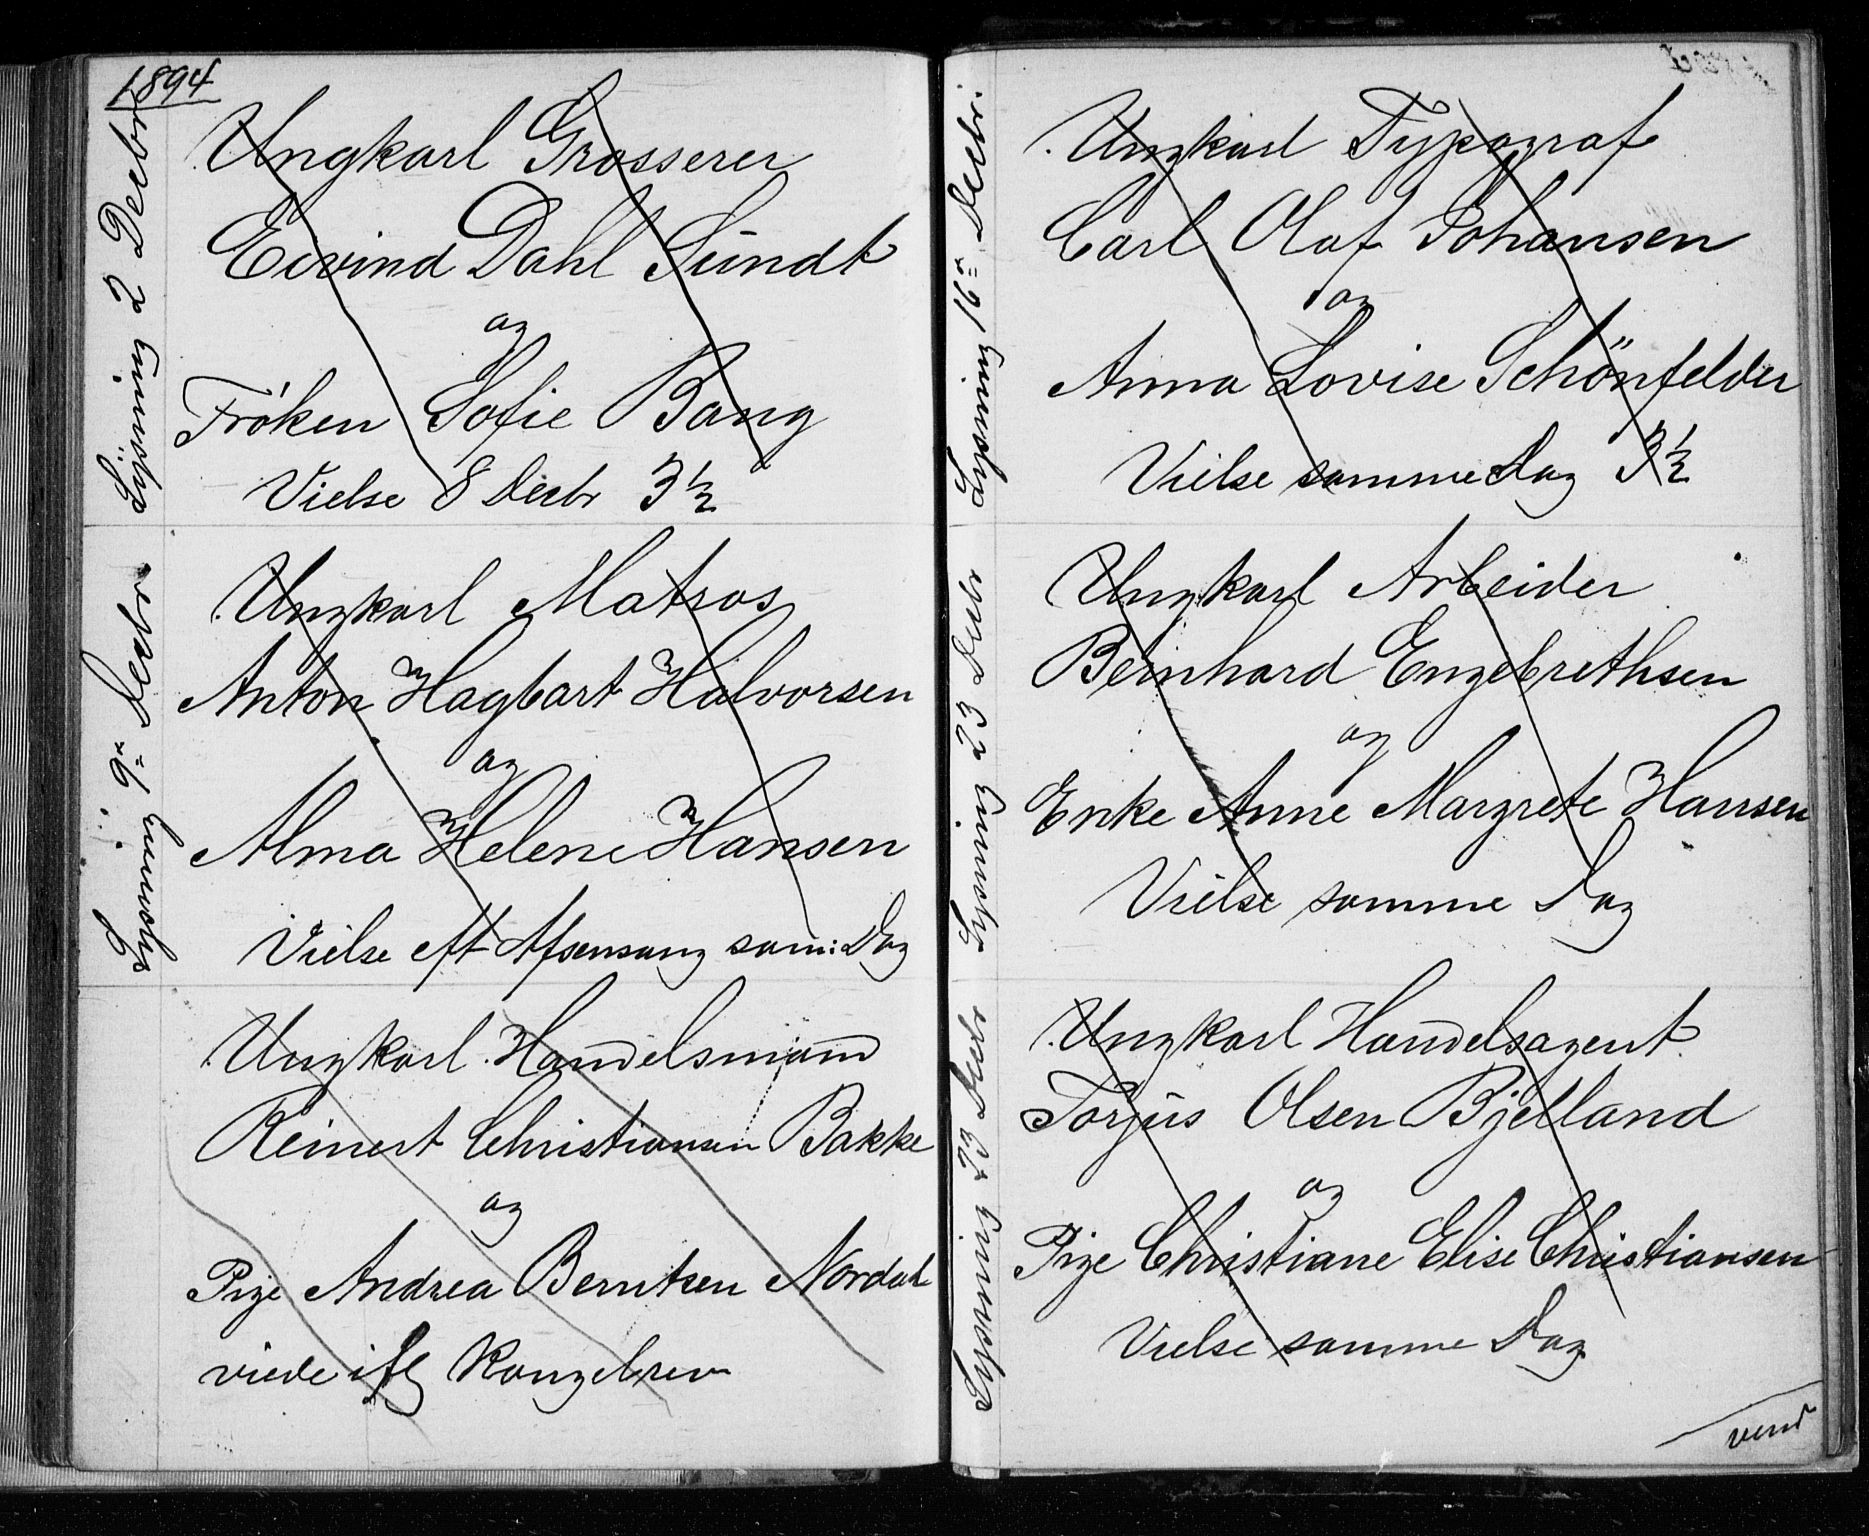 1894
Lysning 2 Decbr
Ungkarl Grosserer
Eivind Dahl Sundt
og
Frøken Sofie Bang
Vielse 8 Decbr 3 1/2
Lysning 9de Decbr
Ungkarl Matros
Anton Hagbart Halvorsen
og
Alma Helene Hansen
Vielse eft Aftensang sam: Dag
Ungkarl Handelsmand
Reinert Christiansen Bakke
og
Pige Andrea Berntsen Nordal
viede iflg Kongebrev
Lysning 16de Decbr.
Ungkarl Typograf
Carl Olaf Johansen
og
Anna Lovise Schönfelder
Vielse samme Dag 3 1/2
Lysning 23 Decbr
Ungkarl Arbeider
Bernhard Engebrethsen
og
Enke Anne Margrete Hansen
Vielse samme Dag
Lysning 23 Decbr
Ungkarl Handelsagent
Torjus Olsen Bjelland
og
Pige Christiane Elise Christiansen
Vielse samme Dag
vend